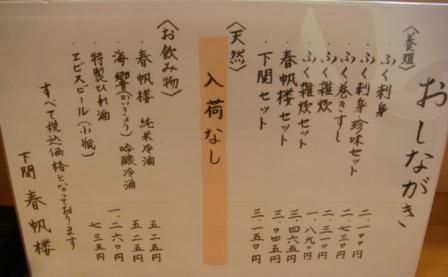 おしながき
〈養殖〉
・ふく刺身 二.一〇〇円
・ふく刺身・珍味セット 二.七三〇円
・ふく巻きずし
・ふく雑炊 一.八九〇円
・ふく雑炊セット
・春帆楼セット 三.四六五円
・下関セット 三.一五〇円
〈天然〉
入荷なし
〈お飲み物〉
・春帆楼 純米冷酒 五二五円
・海響(かいきょう)吟醸冷酒 一.二六〇円
・特製ひれ酒
・エビスビール(小瓶) 七三五円
すべて税込価格となっております
下関 春帆楼